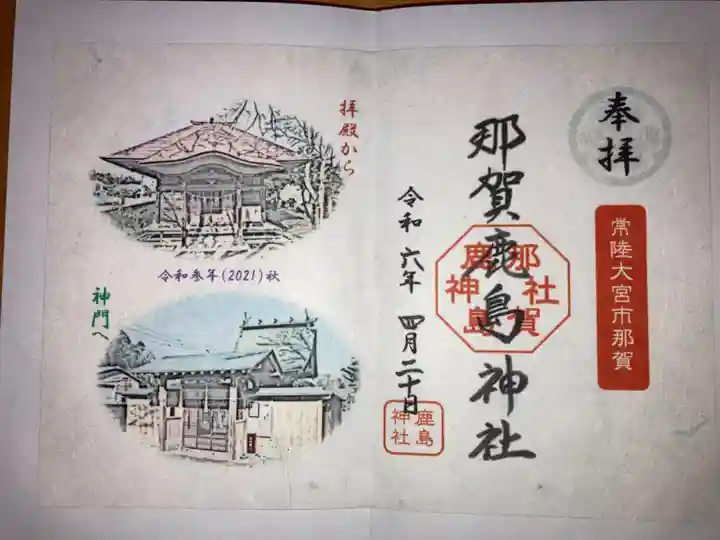 奉拝
常陸大宮市那賀
那賀鹿島神社
那賀
鹿島
神社
令和 六年 四月二十日
鹿島
神社
拝殿から
令和参年(2021)秋
神門へ